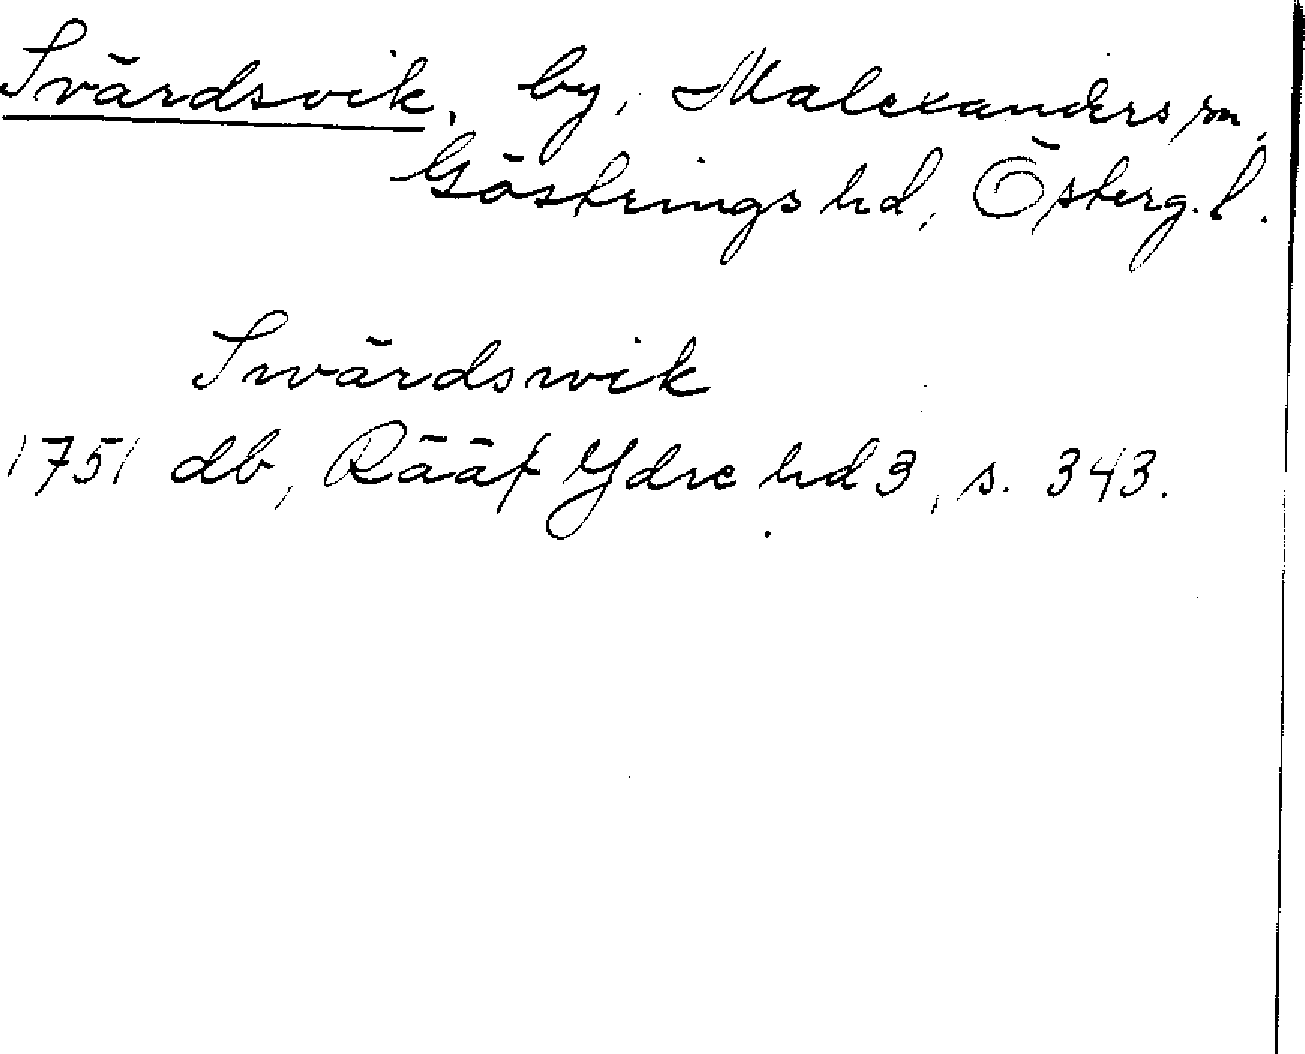 Svärdsvik, by, Malexanders sn,
Göstrings hd, Österg. l.
Swärdswik
1751 db, Rääf Ydre hd 3, s. 343.